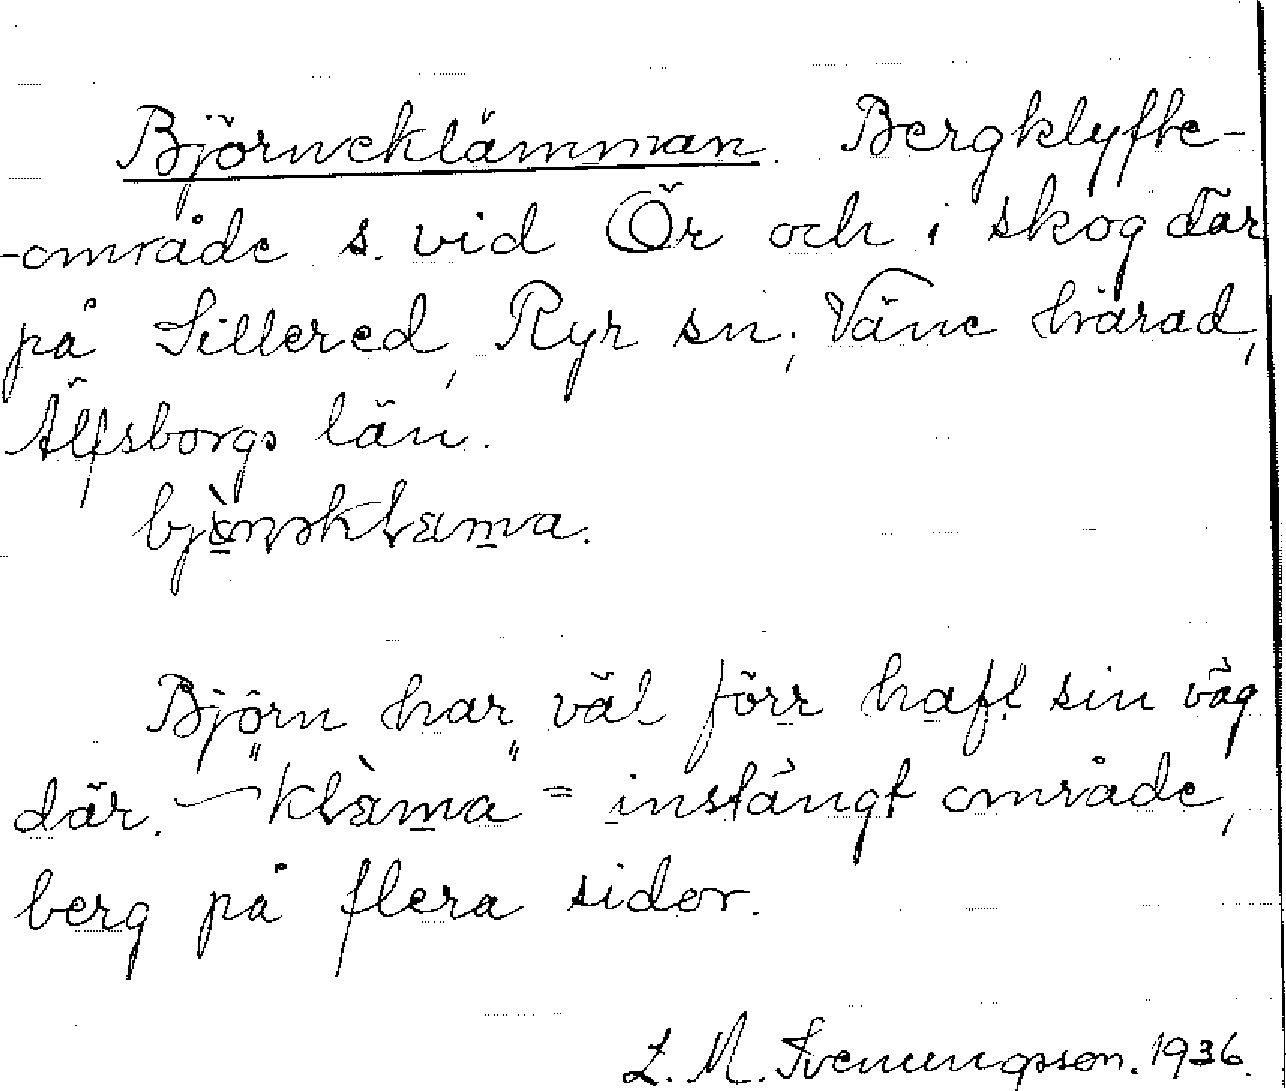 Björneklämman. Bergklyfte-
-område s. vid Ör och i skog där
på Sillered, Ryr sn; Väne härad,
Älfsborgs län.
Björn har väl förr haft sin väg
där. – "klàma" = instängt område,
berg på flera sidor.
L. M. Svenungsson. 1936.